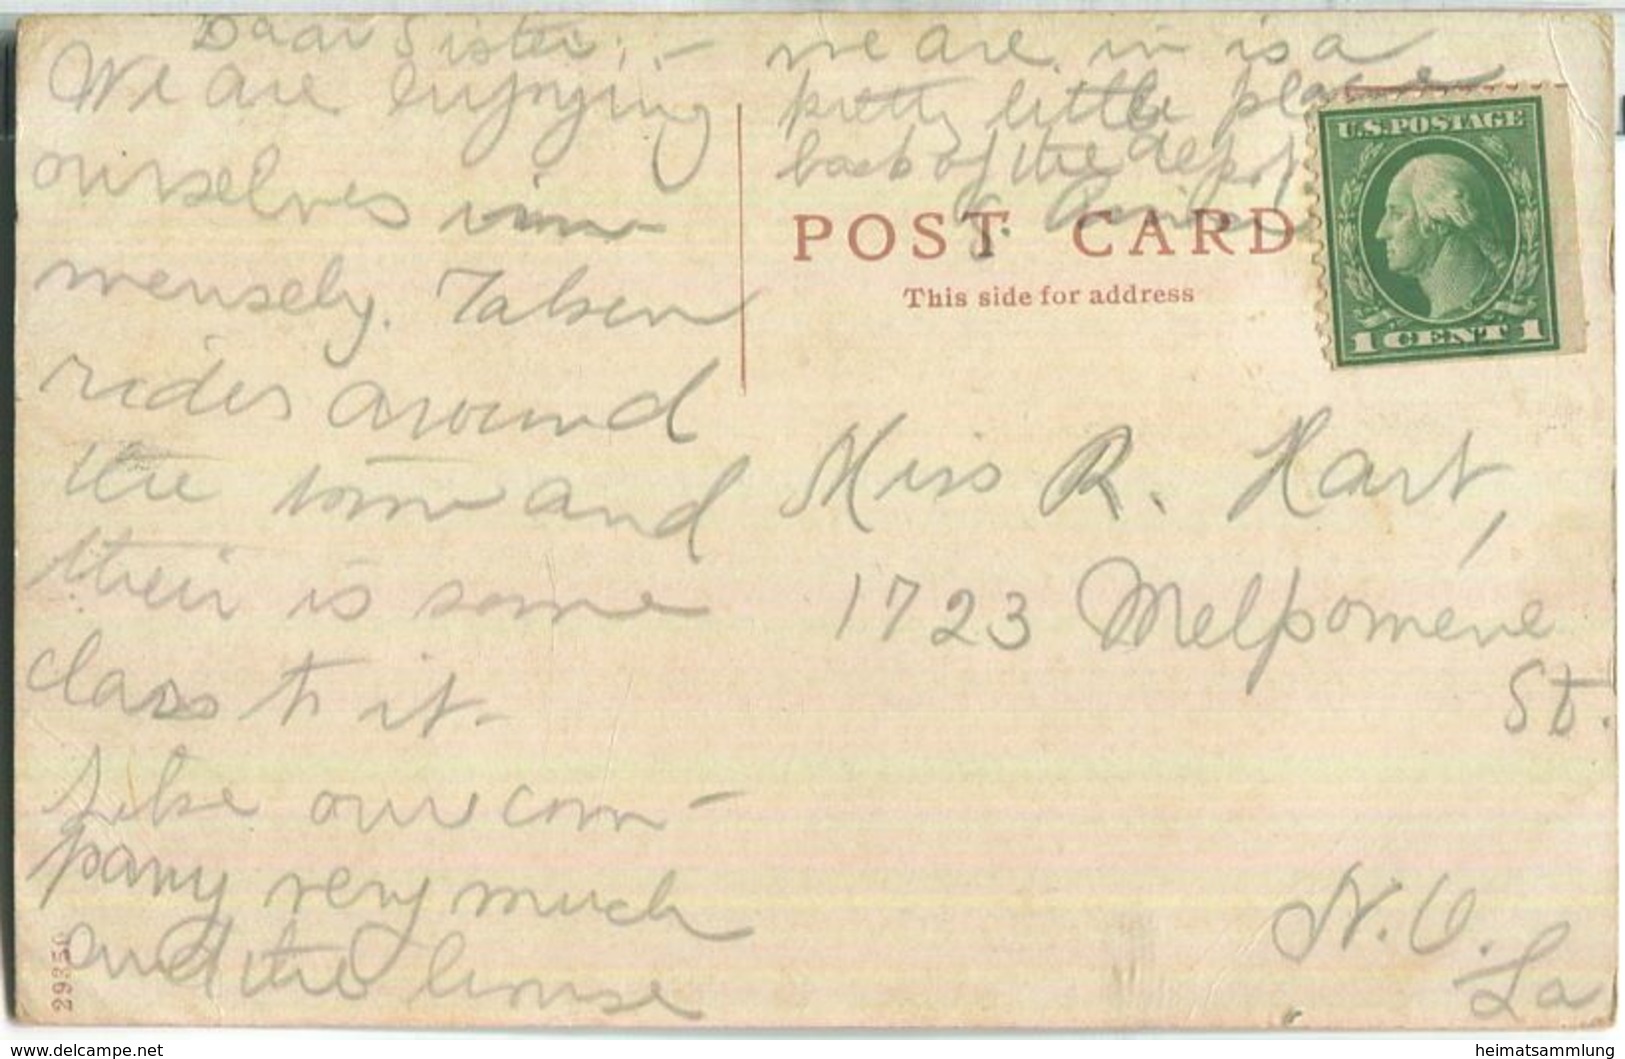 Dear Sister; -
We are enjoying
ourselves im-
mensely. Taken
rides around
the town and
their is some
class to it.
Like our com-
pany very much
and the house
we are in is a
pretty little place
back of the depot
POST CARD
This side for address
U.S.POSTAGE
1 CENT 1
Miss R. Hart,
1723 Melpomene
St.
N. O.
La
29350
www.delcampe.net
heimatsammlung